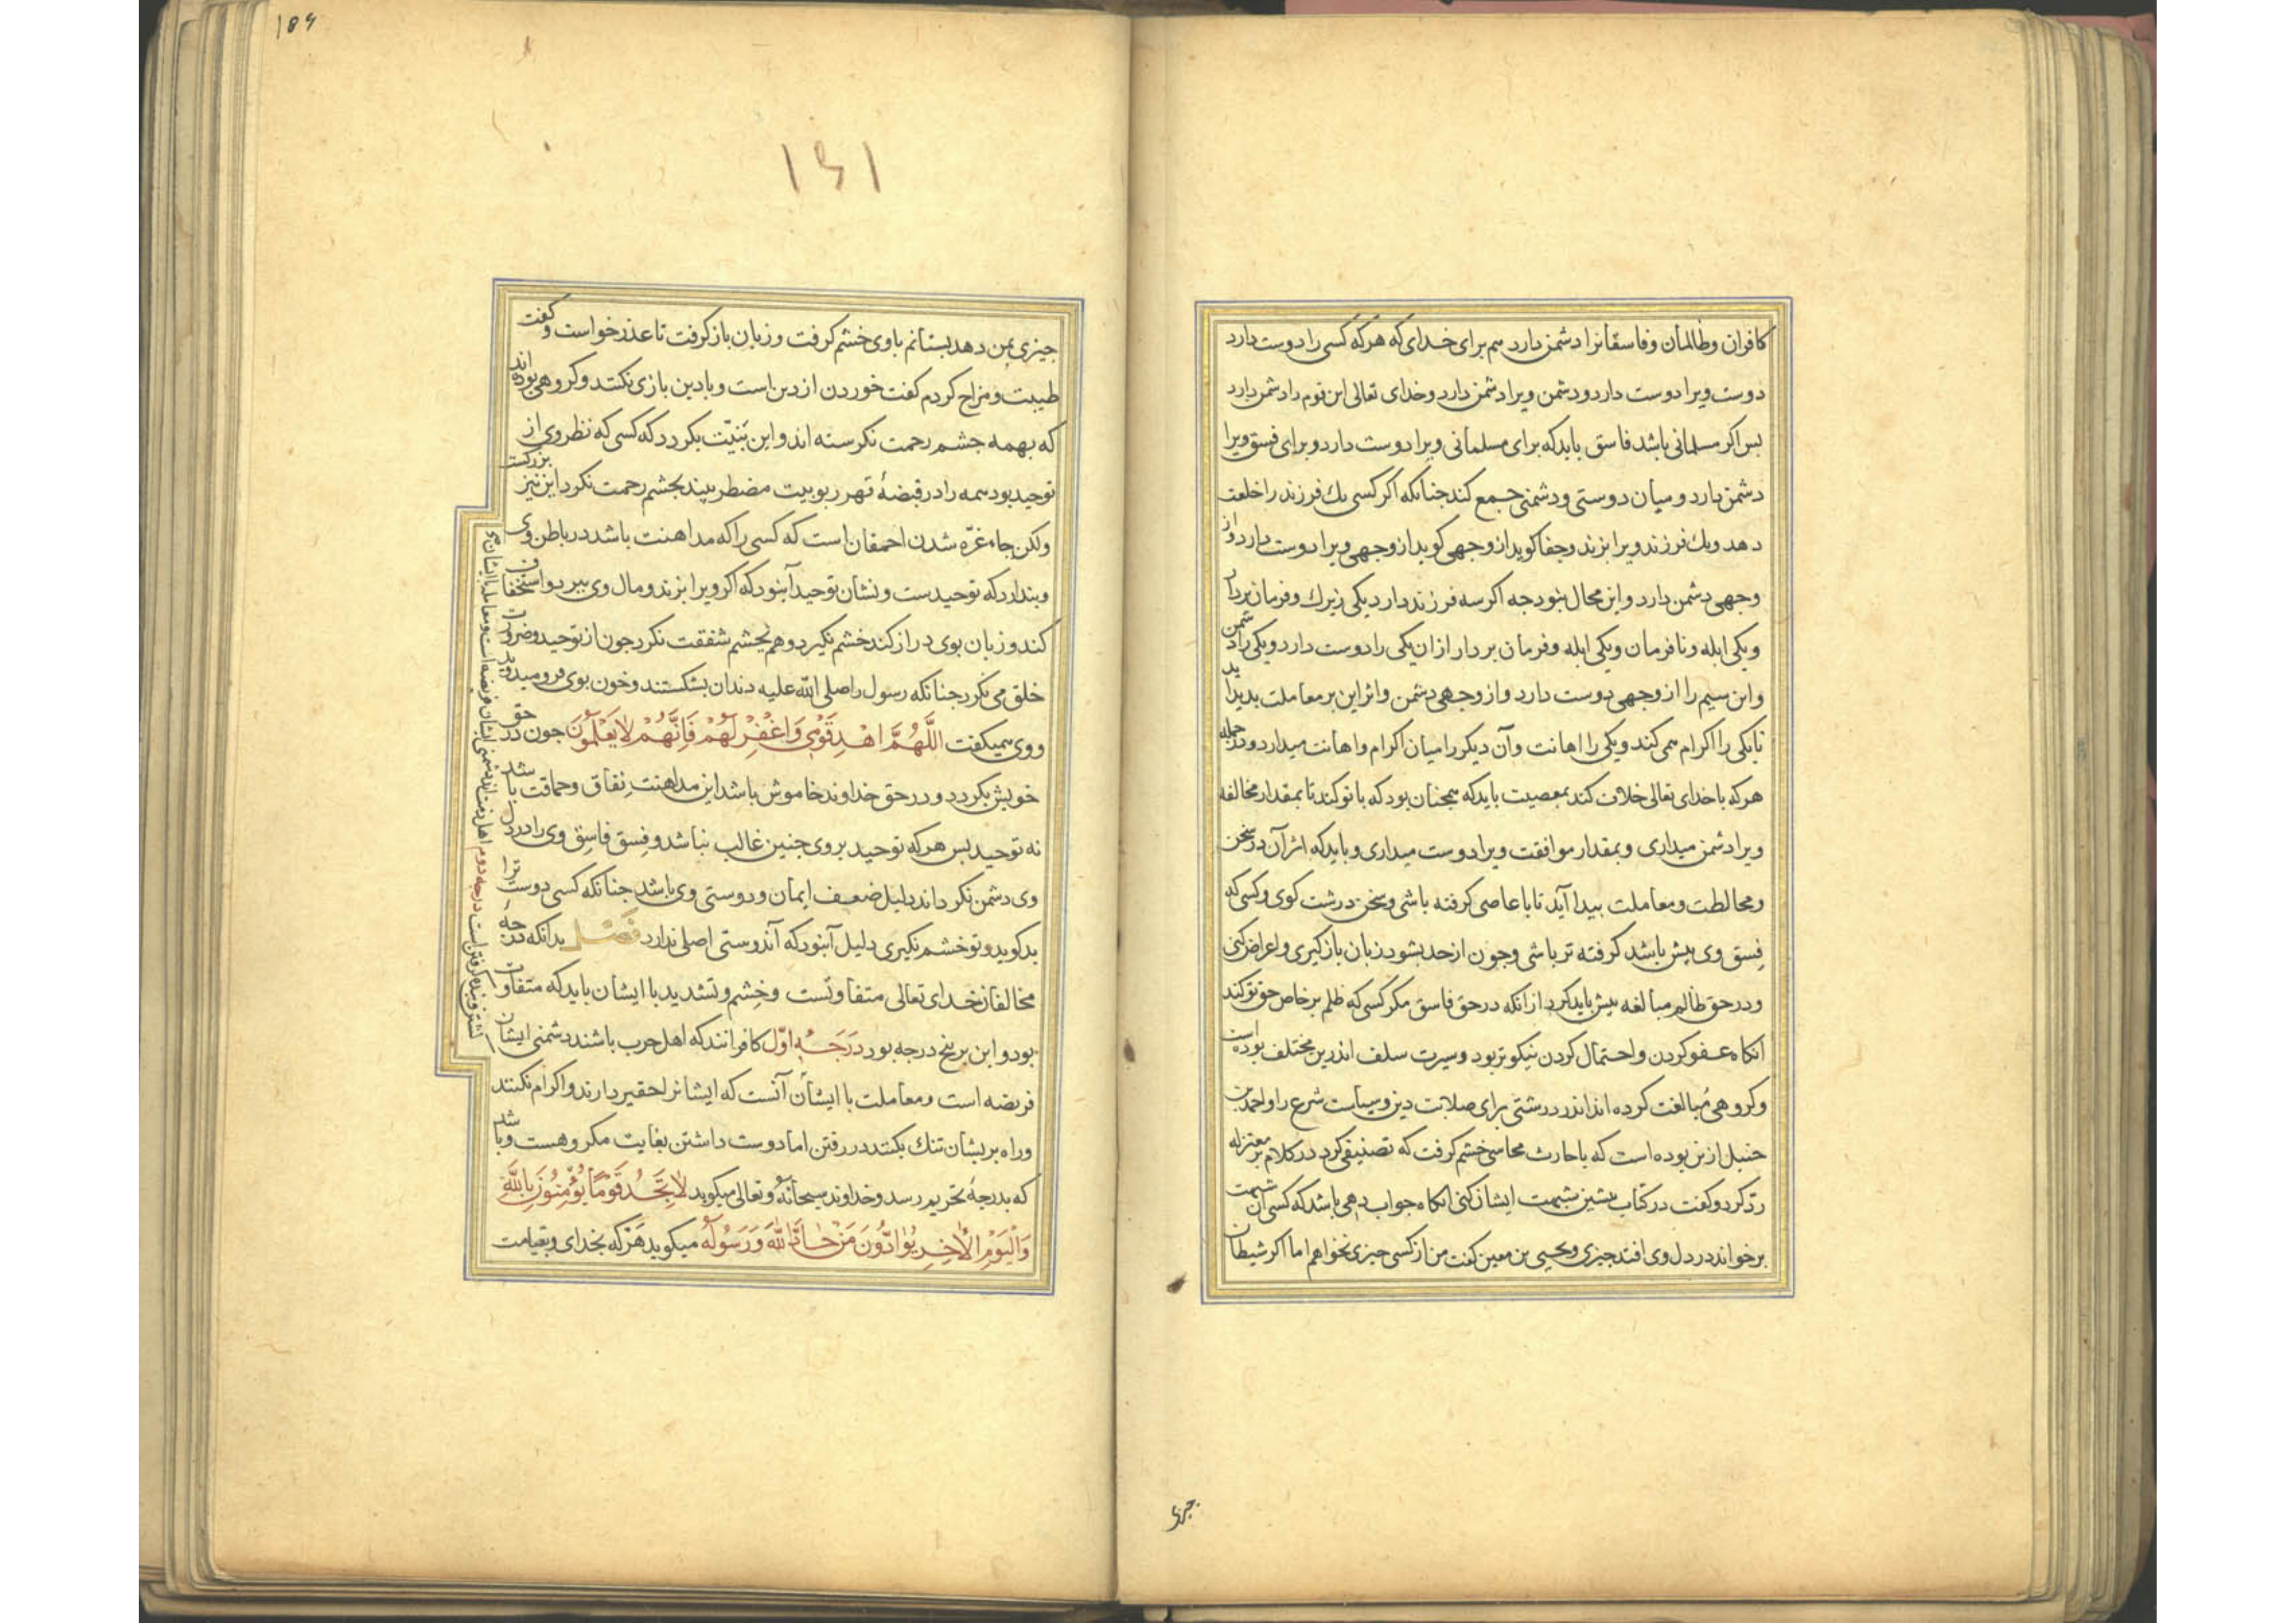 کافران وظالمان وفاسقانرا دشمن دارد هم برای خدای که هرکه کسی را دوست دارد
دوست ویرا دوست دارد ودشمن ویرا دشمن دارد وخدای تعالی این قوم را دشمن دارد
بس اکر مسلمانی باشد فاسق بایدکه برای مسلمانی ویرا دوست دارد وبرای فسق ویرا
دشمن دارد ومیان دوستی ودشمنی جمع کند جنانکه اکر کسی یك فرزند را خلعت
دهد ویك فرزند ویرا بزند وجفا کوید از وجهی کوید از وجهی ویرا دوست دارد واز
وجهی دشمن دارد واین محال نبود جه اکر سه فرزند دارد یکی زیرك وفرمان بردار
ویکی ابله ونافرمان ویکی ابله وفرمان بردار ازان یکی را دوست دارد ویکی را دشمن
واین سیم را از وجهی دوست دارد واز وجهی دشمن واثر این بر معاملت بدید اید
تا یکی را اکرام همی کند ویکی را اهانت وآن دیکر را میان اکرام واهانت میدارد ودر جمله
هرکه با خدای تعالی خلاف کند بمعصیت بایدکه همجنان بود که با توکند تا بمقدار مخالفه
ویرا دشمن میداری وبمقدار موافقت ویرا دوست میداری وبایدکه اثر آن در سخن
ومخالطت ومعاملت بیدا آید تا با عاصی کرفته باشی وسخن درشت کوی وکسی که
فِسق وی بیش باشد کرفته تر باشی وجون از حد بشود زبان بازکیری واعراض کنی
ودر حق ظالم مبالغه بیش بایدکرد از انکه در حق فاسق مکر کسی که ظلم بر خاص حق تو کند
انکاه عفو کردن واحتمال کردن نیکوتر بود وسیرت سلف اندرین مختلف بوده است
وکروهی مُبالغت کرده اند اندر درشتی برای صلابت دین وسیاست شرع را واحمد بن
حنبل ازین بوده است که با حارث محاسبی خشم کرفت که تصنیفی کرد در کلام بر معتزله
ردّ کرد وکفت در کتاب بیشین شبهت ایشان کنی انکاه جواب دهی باشد که کسی آن شبهت
برخواند در دل وی افتد جیزی ویحیی بن معین کفت من از کسی جیزی نخواهم اما اکر شیطان
جیزی
۱۸۶
۱۶۱
جیزی بمن دهد بستانم با وی خشم کرفت وزبان باز کرفت تا عذر خواست وکفت
طیبت ومزاح کردم کفت خوردن از دین است وبا دین بازی نکنند وکروهی بوده اند
که بهمه جشم رحمت نکرسته اند واین بنیّت بکردد که کسی که نظر وی از
توحید بود همه را در قبضهٔ قهر ربوبیت مضطر بیند بجشم رحمت نکرد این نیز بزرکست
ولکن جاء غرّه شدن احمقان است که کسی را که مداهنت باشد در باطن وی
وبندارد که توحیدست ونشان توحید آن بود که اکر ویرا بزند ومال وی ببرد واستخفاف
کند وزبان بوی دراز کند خشم نکیرد وهم بجشم شفقت نکرد جون از توحید وضرورت
خلق می نکرد جنانکه رسول را صلی الله علیه دندان بشکستند وخون بوی فرو میدوید
ووی همیکفت اللَّهُمَّ اهْدِ قَوْمِی وَاغْفِرْ لَهُمْ فَإِنَّهُمْ لَا یَعْلَمُونَ جون در حق
خویش بکردد ودر حق خداوند خاموش باشد این مداهنت ونفاق وحماقت باشد
نه توحید بس هرکه توحید بر وی جنین غالب نباشد وفِسق فاسِق وی را در دل
وی دشمن نکرداند دلیل ضعف ایمان ودوستی وی باشد جنانکه کسی دوست ترا
بد کوید وتو خشم نکیری دلیل آن بود که آن دوستی اصلی ندارد فصل بدانکه درجه
مخالفان خدای تعالی متفاوتست وخشم وتشدید با ایشان بایدکه متفاوت
بود واین بر پنج درجه بود دَرَجَهٔ اوّل کافرانند که اهل حرب باشند دشمنی ایشان
فریضه است ومعاملت با ایشان آنست که ایشانرا حقیر دارند واکرام نکنند
وراه بریشان تنك بکنند در رفتن اما دوست داشتن بغایت مکروهست وباشد
که بدرجهٔ تحریم رسد وخداوند سبحانه وتعالی میکوید لَا تَجِدُ قَوْمًا یُؤْمِنُونَ بِاللَّهِ
وَالْیَوْمِ الْآخِرِ یُوَادُّونَ مَنْ حَادَّ اللَّهَ وَرَسُولَهُ میکوید هرکه بخدای وبقیامت
فریضه است ومعامله با ایشان
کشتن وبنده کرفتن است درجه دوم اهل ذمت اند دشمنی ایشان